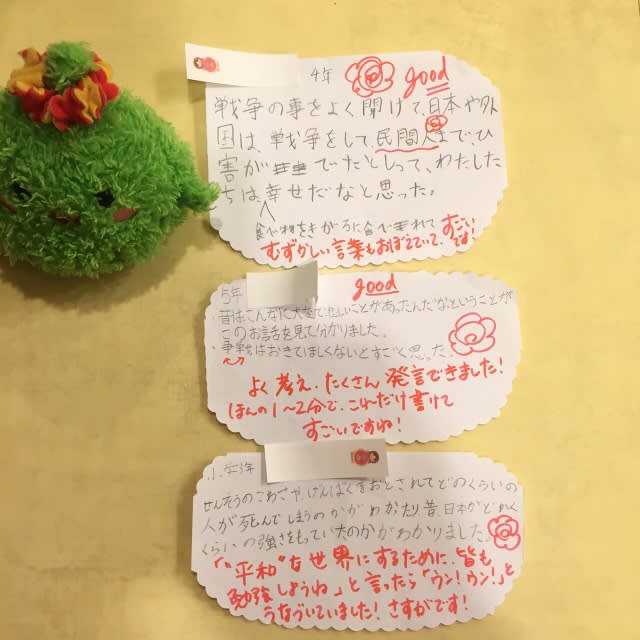 4年
good
戦争の事をよく聞けて、日本や外
国は、戦争をして、民間人まで、ひ
害がでたとしって、わたした
ちは、幸せだなと思った。
食べ物をきがるに食べれて
すごい
むずかしい言葉もおぼえていて、です!
5年
good
・昔はこんなに大変で悲しいことがあったんだなということが
このお話を見て分かりました。
・争戦はおきてほしくないとすごく思った。
よく考え、たくさん発言できました!
ほんの1〜2分で、これだけ書けて
すごいですね!
小学3年
せんそうのこわさや、げんばくをおとされてどのくらいの
人が死んでしまうのかがわかったり昔、日本がどれ
くらいの強さをもっていたのかがわかりました。
「"平和"な世界にするために、皆も
勉強しようね」と言ったら「ウン!ウン!」と
うなづいていました!さすがです!